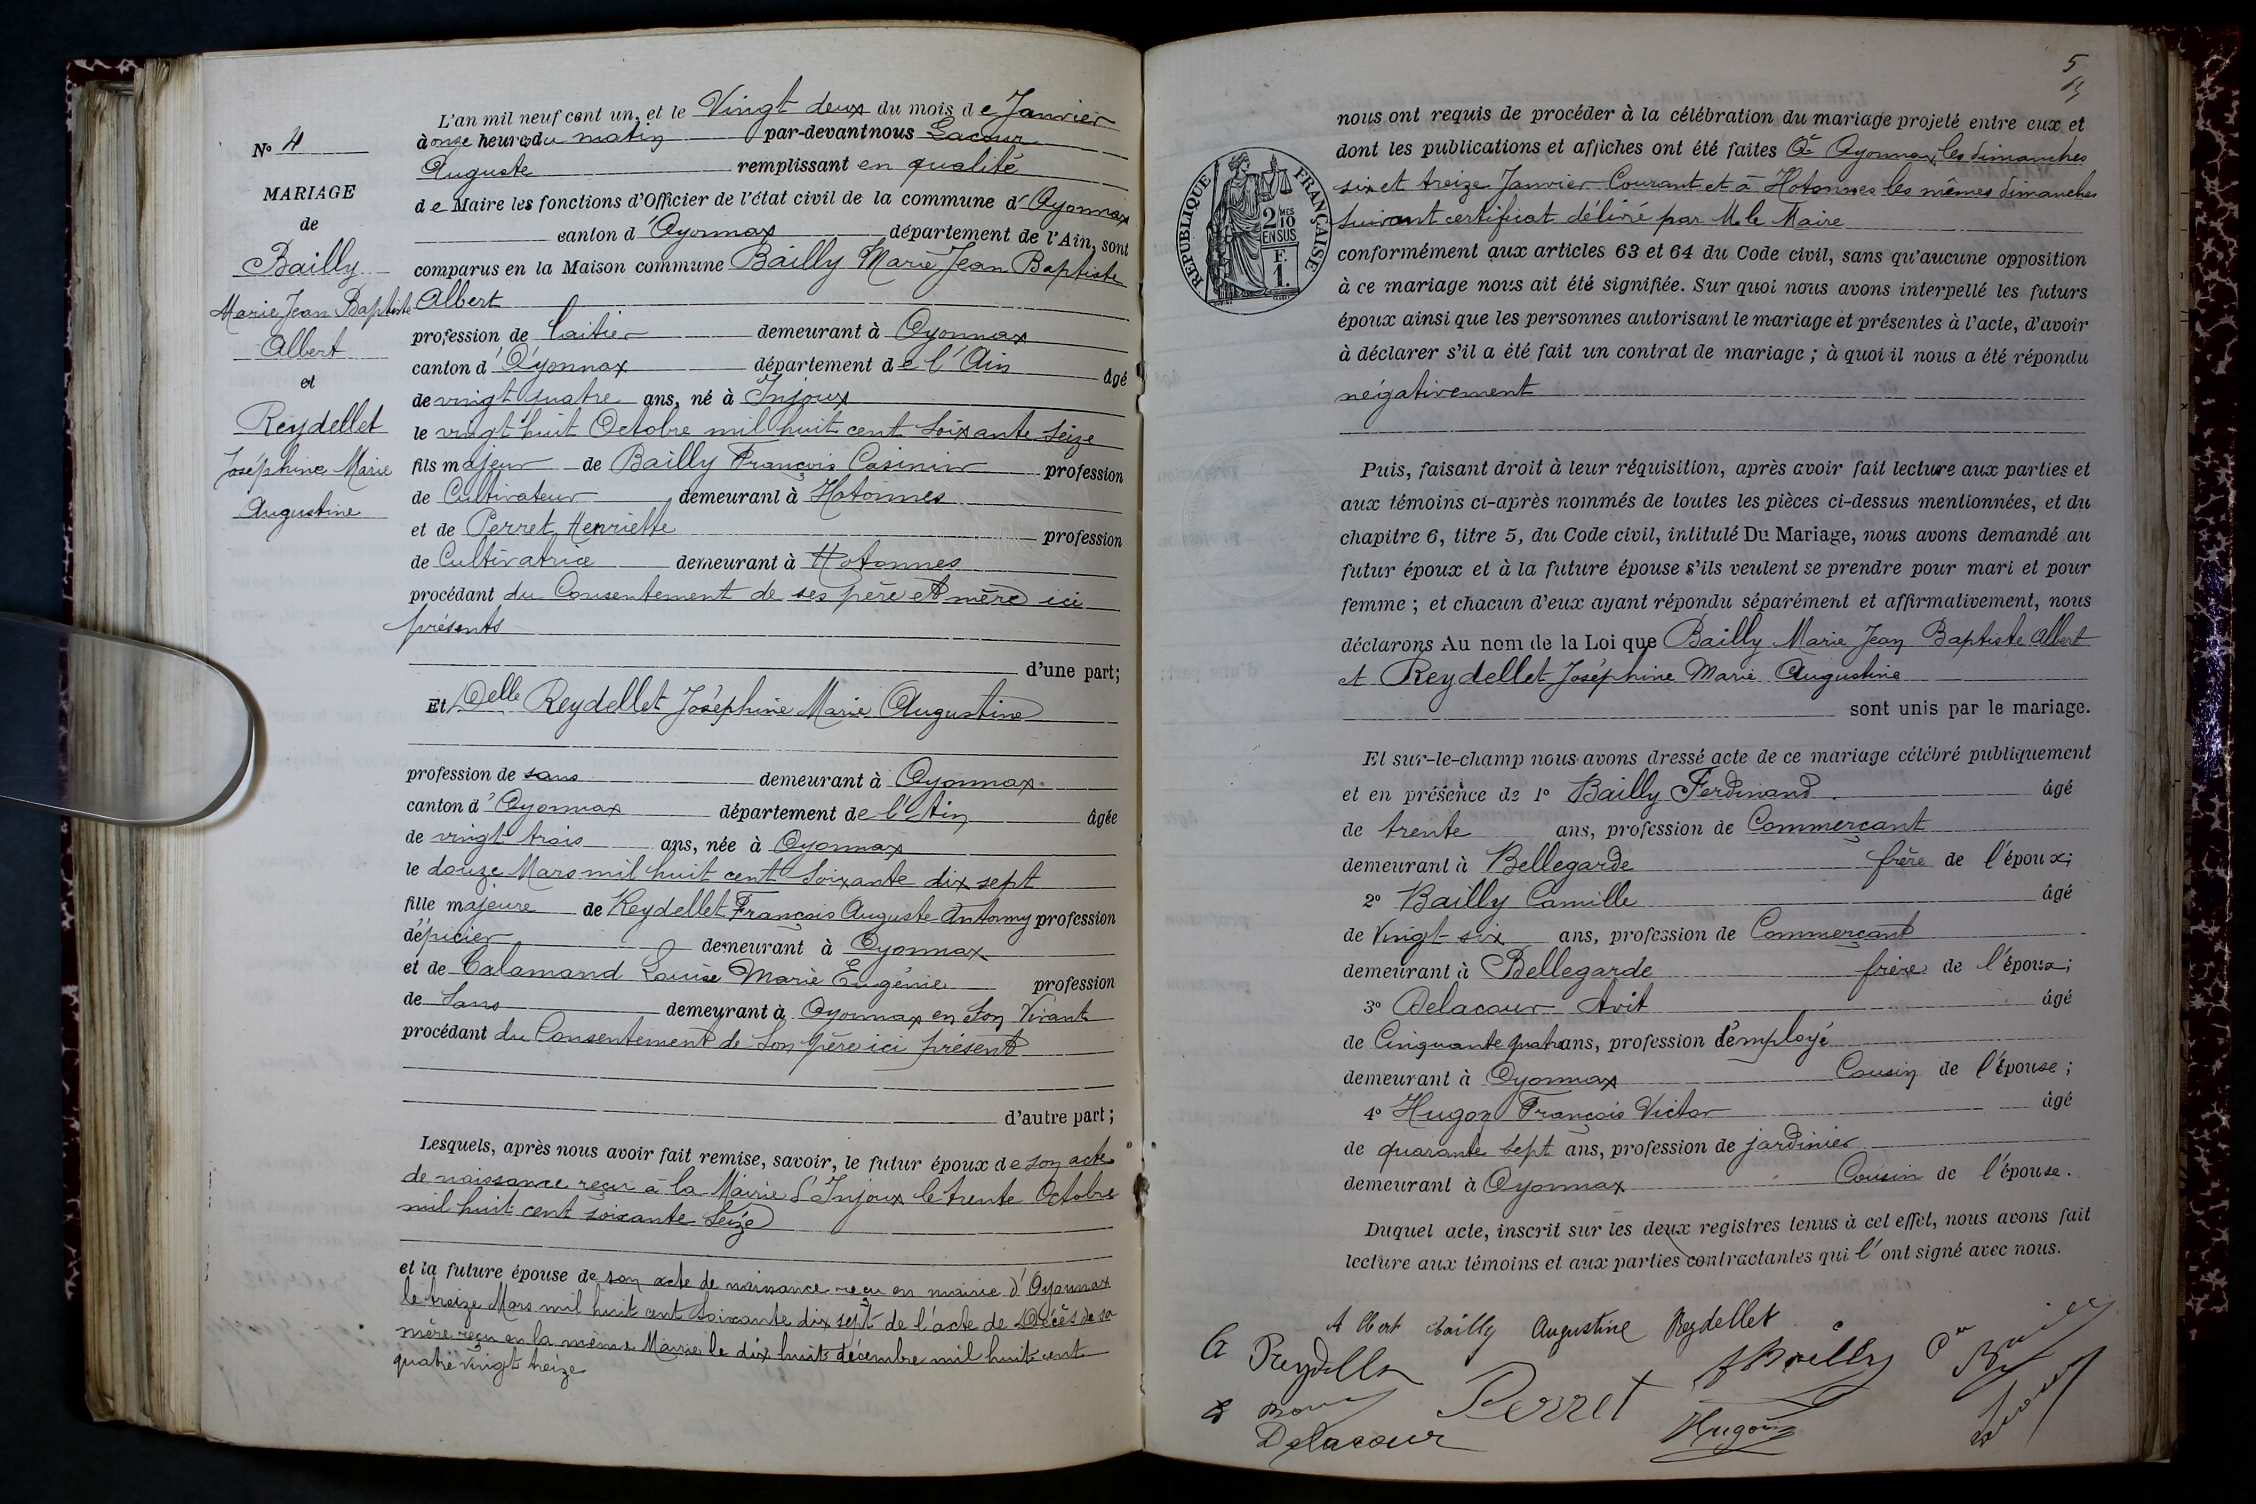 L'an mil neuf cent un, et le Vingt deux du mois de Janvier
à onze heures du matin par-devant nous Lacour
Auguste remplissant en qualité
de Maire les fonctions d'Officier de l'état civil de la commune d'Oyonnax
canton d'Oyonnax département de l'Ain, sont
comparus en la Maison commune Bailly Marie Jean Baptiste
Albert
profession de laitier demeurant à Oyonnax
canton d'Oyonnax département de l'Ain âgé
de vingt quatre ans, né à Injoux
le vingt huit Octobre mil huit cent soixante seize
fils majeur de Bailly François Casimir profession
de Cultivateur demeurant à Hotonnes
et de Perret Henriette profession
de Cultivatrice demeurant à Hotonnes
procédant du Consentement de ses père et mère ici
présents
d'une part;
Et Delle Reydellet Joséphine Marie Augustine
profession de sans demeurant à Oyonnax
canton d'Oyonnax département de l'Ain âgée
de vingt trois ans, née à Oyonnax
le douze Mars mil huit cent soixante dix sept
fille majeure de Reydellet François Auguste Antonny profession
d'épicier demeurant à Oyonnax
et de Calamand Louise Marie Eugénie profession
de sans demeurant à Oyonnax en son Vivant
procédant du Consentement de son père ici présent
d'autre part;
Lesquels, après nous avoir fait remise, savoir, le futur époux de son acte
de naissance reçu à la Mairie d'Injoux le trente Octobre
mil huit cent soixante seize
et la future épouse de son acte de naissance reçu en mairie d'Oyonnax
le treize Mars mil huit cent soixante dix sept de l'acte de Décès de sa
mère reçu en la même Mairie le dix huit décembre mil huit cent
quatre vingt treize
No 4
MARIAGE
de
Bailly
Marie Jean Baptiste
Albert
et
Reydellet
Joséphine Marie
Augustine
5
nous ont requis de procéder à la célébration du mariage projeté entre eux et
dont les publications et affiches ont été faites à Oyonnax les dimanches
six et treize Janvier Courant et à Hotonnes les mêmes dimanches
suivant certificat délivré par M. le Maire
conformément aux articles 63 et 64 du Code civil, sans qu'aucune opposition
à ce mariage nous ait été signifiée. Sur quoi nous avons interpellé les futurs
époux ainsi que les personnes autorisant le mariage et présentes à l'acte, d'avoir
à déclarer s'il a été fait un contrat de mariage; à quoi il nous a été répondu
négativement
RÉPUBLIQUE FRANÇAISE
2 MES
10
EN SUS
F.
1.
Puis, faisant droit à leur réquisition, après avoir fait lecture aux parties et
aux témoins ci-après nommés de toutes les pièces ci-dessus mentionnées, et du
chapitre 6, titre 5, du Code civil, intitulé Du Mariage, nous avons demandé au
futur époux et à la future épouse s'ils veulent se prendre pour mari et pour
femme; et chacun d'eux ayant répondu séparément et affirmativement, nous
déclarons Au nom de la Loi que Bailly Marie Jean Baptiste Albert
et Reydellet Joséphine Marie Augustine
sont unis par le mariage.
Et sur-le-champ nous avons dressé acte de ce mariage célébré publiquement
et en présence de 1o Bailly Ferdinand âgé
de trente ans, profession de Commerçant
demeurant à Bellegarde frère de l'époux;
2o Bailly Camille âgé
de Vingt six ans, profession de Commerçant
demeurant à Bellegarde frère de l'époux;
3o Delacour Avit âgé
de Cinquante quatre ans, profession d'employé
demeurant à Oyonnax Cousin de l'épouse;
4o Hugon François Victor âgé
de quarante sept ans, profession de jardinier
demeurant à Oyonnax Cousin de l'épouse.
Duquel acte, inscrit sur les deux registres tenus à cet effet, nous avons fait
lecture aux témoins et aux parties contractantes qui l'ont signé avec nous.
Albert Bailly Augustine Reydellet
A Reydellet F Bailly
Perret Hugon
Delacour